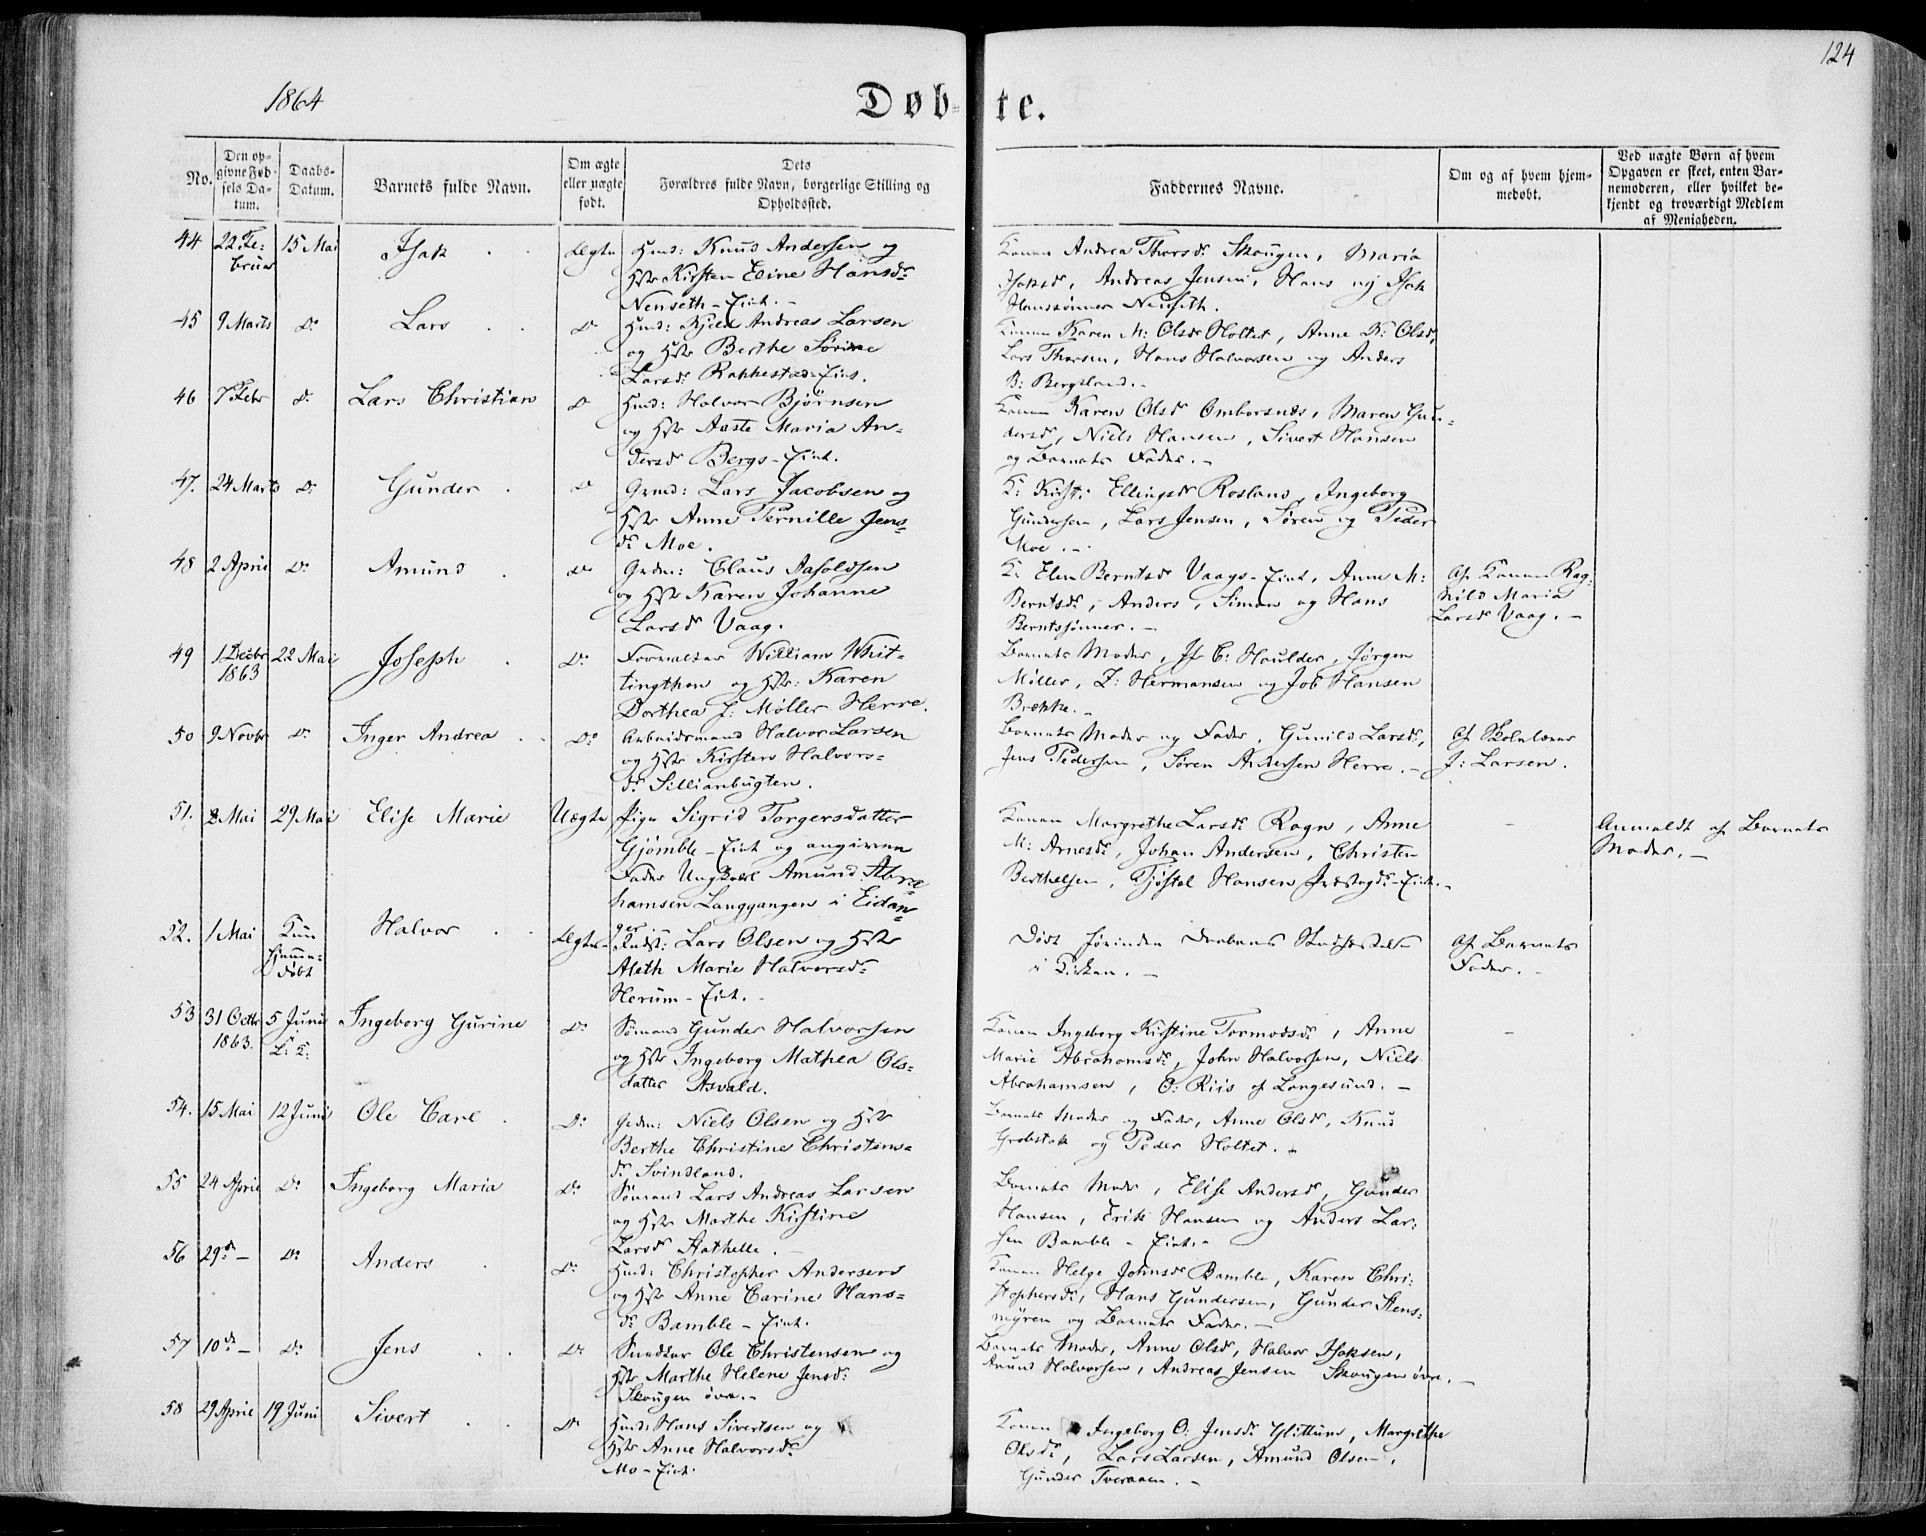 124
1864
Døb- te.
No.
Den op-
givne Fød-
sels Da-
tum.
Daabs-
Datum.
Barnets fulde Navn.
Om ægte
eller uægte
født.
Dets
Forældres fulde Navn, borgerlige Stilling og
Opholdssted.
Faddernes Navne.
Om og af hvem hjem-
medøbt.
Ved uægte Børn af hvem
Opgaven er skeet, enten Bar-
nemoderen, eller hvilket be-
kjendt og troværdigt Medlem
af Menigheden.
44 22 Fe- 15 Mai Isak Ægte Huusm: Knud Andersen og
bruar Hstr Kirsten Eline Hansdr
Nenseth-Eiet.-
Konen Andrea Thorsdr Skougen, Maria
Isaksdr, Andreas Jensen, Hans og Isak
Hanssønner Nenseth.
45 9 Marts Do Lars Do Huusm: Kjeld Andreas Larsen
og Hstr Berthe Sørine
Larsdr Rakkestad-Eiet.
Konen Karen M: Olsdr Holtet, Anne K: Olsdr,
Lars Thorsen, Hans Halvorsen og Anders
B: Bergsland.-
46 7 Febr Do Lars Christian Do Huusm: Halvor Bjørnsen
og Hstr Aaste Maria An-
dersdr Bergs-Eiet.
Konen Karen Olsdr Omborsnes, Maren Gun-
dersdr, Niels Hansen, Sivert Hansen
og Barnets Fader.-
47. 24 Marts Do Gunder Do Grmd: Lars Jacobsen og
Hstr Anne Pernille Jens-
dr Moe.
K: Kirsti Ellingsdr Rosland, Ingeborg
Gundersen, Lars Jensen, Søren og Peder
Moe.-
48 2 April Do Amund Do Grdm: Claus Aasoldsen
og Hstr Karen Johanne
Larsdr Vaag.
K: Elen Berntsdr Vaags-Eiet, Anne M:
Berntsdr, Anders, Simon og Hans
Berntssønner.-
Af Konen Rag-
nild Maria
Larsdr Vaag.-
49 1 Decbr 22 Mai Joseph Do Forvalter William Whit-
1863 tingthon og Hstr: Karen
Dorthea J: Møller Herre.
Barnets Moder, Jfr C: Houlder, Jørgen
Møller, Z: Hermansen og Job Hansen
Brække.-
50 9 Novbr Do Inger Andrea Do Arbeidsmand Halvor Larsen
og Hstr Kirsten Halvors-
dr Sillianbugten.
Barnets Moder og Fader, Gunild Larsdr,
Jens Pedersen, Søren Andersen Herre.-
Af Skolelærer
J: Larsen.
51. 2 Mai 29 Mai Elise Marie Uægte Pige Sigrid Torgersdatter
Gjømble-Eiet og angiven
Fader Ungkarl Amund Abra
hamsen Langgangen i Eidan-
ger.
Konen Margrethe Larsdr Rogn, Anne
M: Arnesdr, Johan Andersen, Christen
Berthelsen, Tjøstol Hansen
Anmeldt af Barnets
Moder.-
52. 1 Mai Kun Halvor Ægte Lars Olsen og Hstr
hjemme-
døbt
Aleth Marie Halvorsdr
Herum-Eiet.-
Død førinden Daabens Stadfæstelse
i Kirken.-
Af Barnets
Fader.-
53 31 Octbr 5 Juni Ingeborg Gurine Do Sømand Gunder Halvorsen
1863. L: K: og Hstr Ingeborg Mathea Ols-
datter Asvald.
Konen Ingeborg Kirstine Tormodsdr, Anne
Marie Abrahamsdr, John Halvorsen, Niels
Abrahamsen, O: Riis af Langesund.-
54. 15 Mai 12 Juni Ole Carl Do Grdm: Niels Olsen og Hstr
Berthe Christine Christens-
dr Svindland.
Barnets Moder og Fader, Anne Olsdr, Knud
Grobstok og Peder Holtet.-
55 24 April Do Ingeborg Maria Do Sømand Lars Andreas Larsen
og Hstr Marthe Kirstine
Larsdr Stathelle.-
Barnets Moder, Elise Andersdr, Gunder
Hansen, Erik Hansen og Anders Lar-
sen Bamble-Eiet.-
56 29de- Do Anders Do Huusm: Christopher Andersen
og Hstr Anne Carine Hans-
dr Bamble-Eiet.
Konen Helge Johnsdr Bamble, Karen Chri-
stophersdr, Hans Gundersen, Gunder Stens-
myren og Barnets Fader.-
57 10de- Do Jens Do Snedker Ole Christensen og
Hstr Marthe Helene Jensdr
Skougen øvre.-
Barnets Moder, Anne Olsdr, Halvor Isaksen,
Amund Halvorsen, Andreas Jensen Skougen øvre.-
58 29 April 19 Juni Sivert Do Huusm: Hans Sivertsen og
Hstr Anne Halvorsdr
Mo-Eiet.
Konen Ingeborg O: Jensdr Glittum, Margrethe
Olsdr, Lars Larsen, Amund Olsen,
Gunder Tveraaen.-